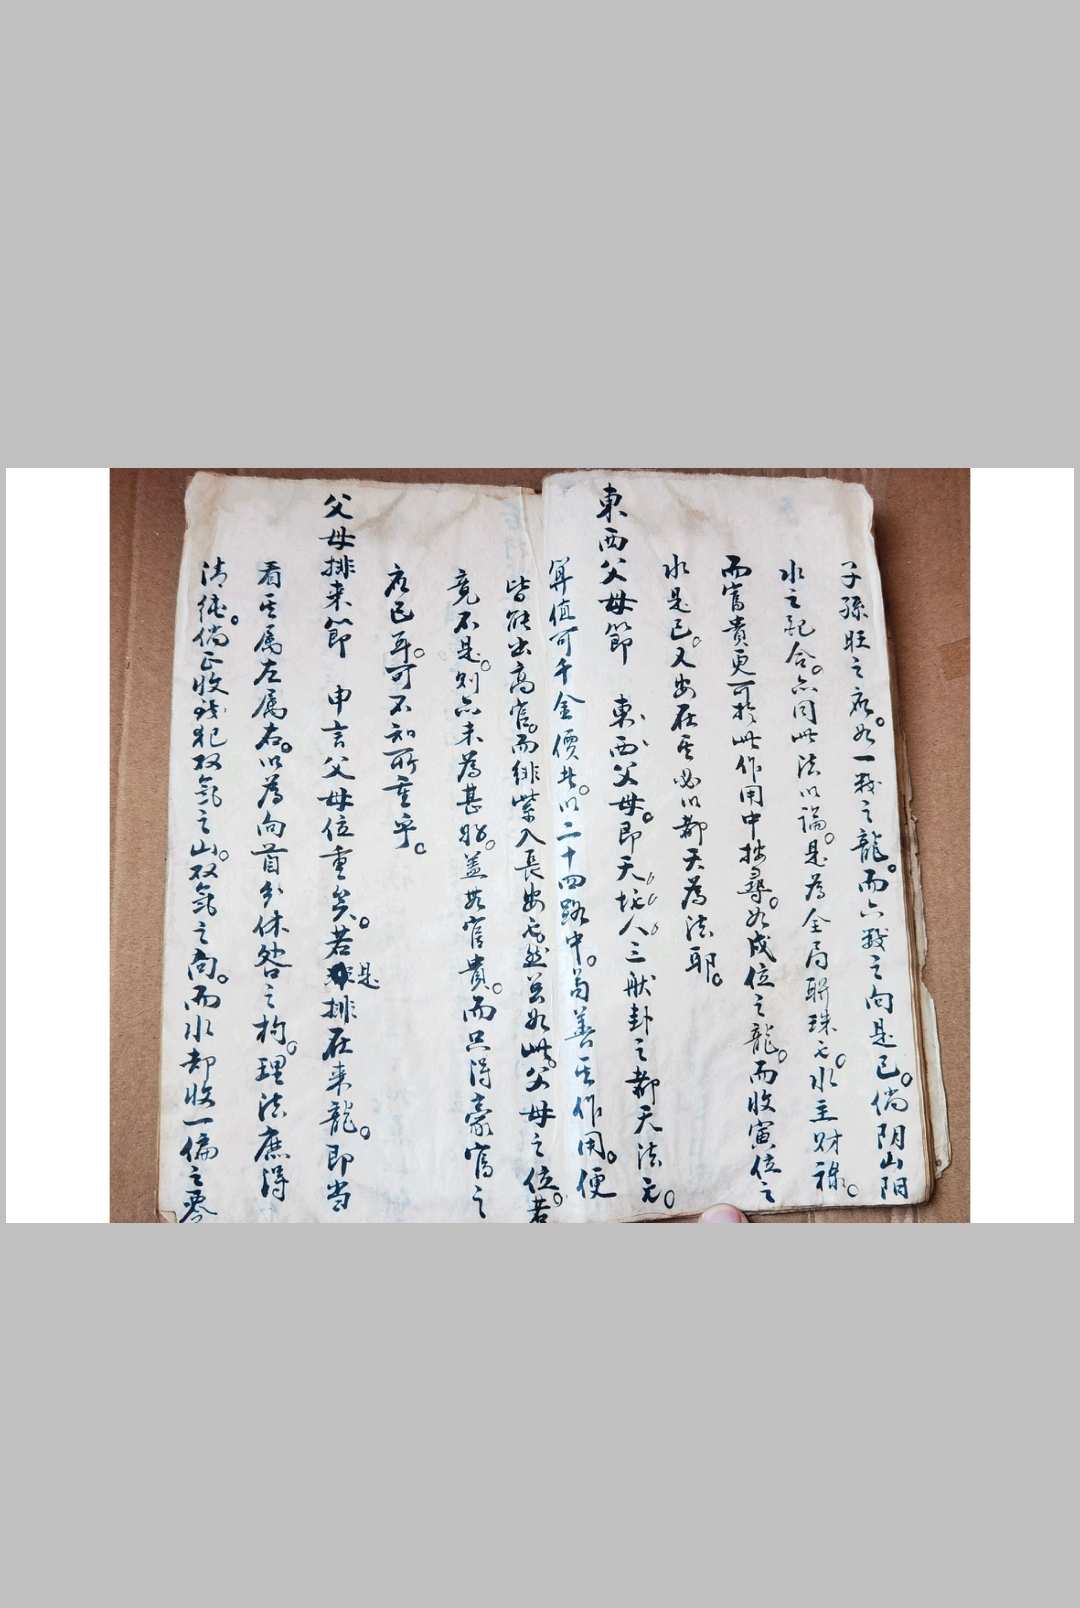 子孫旺之应。如一戬之龍。而六戬之向是已。倘阴山阳
水之配合。亦同此法以論。是為全局聯珠也。水主財祿。
而富貴更可於此作用中搜尋。如成位之龍。而收寅位之
水是已。又安在其必以都天為法耶。
東西父母節 東西父母。即天地人三般卦之都天法尤。
算值可千金價者。以二十四路中。苟善其作用。便
皆能出高官。而緋紫入長安也。然若如此。父母之位。若
竟不是。則亦未為甚好。盖其官貴。而只得豪富之
应已耳。可不知所重乎。
父母排来節 申言父母位重矣。若是排在来龍。即当
看其属左属右。以為向首分休咎之枃。理法庶得
清純。倘正收残犯双氣之山。双氣之向。而水却收一偏之